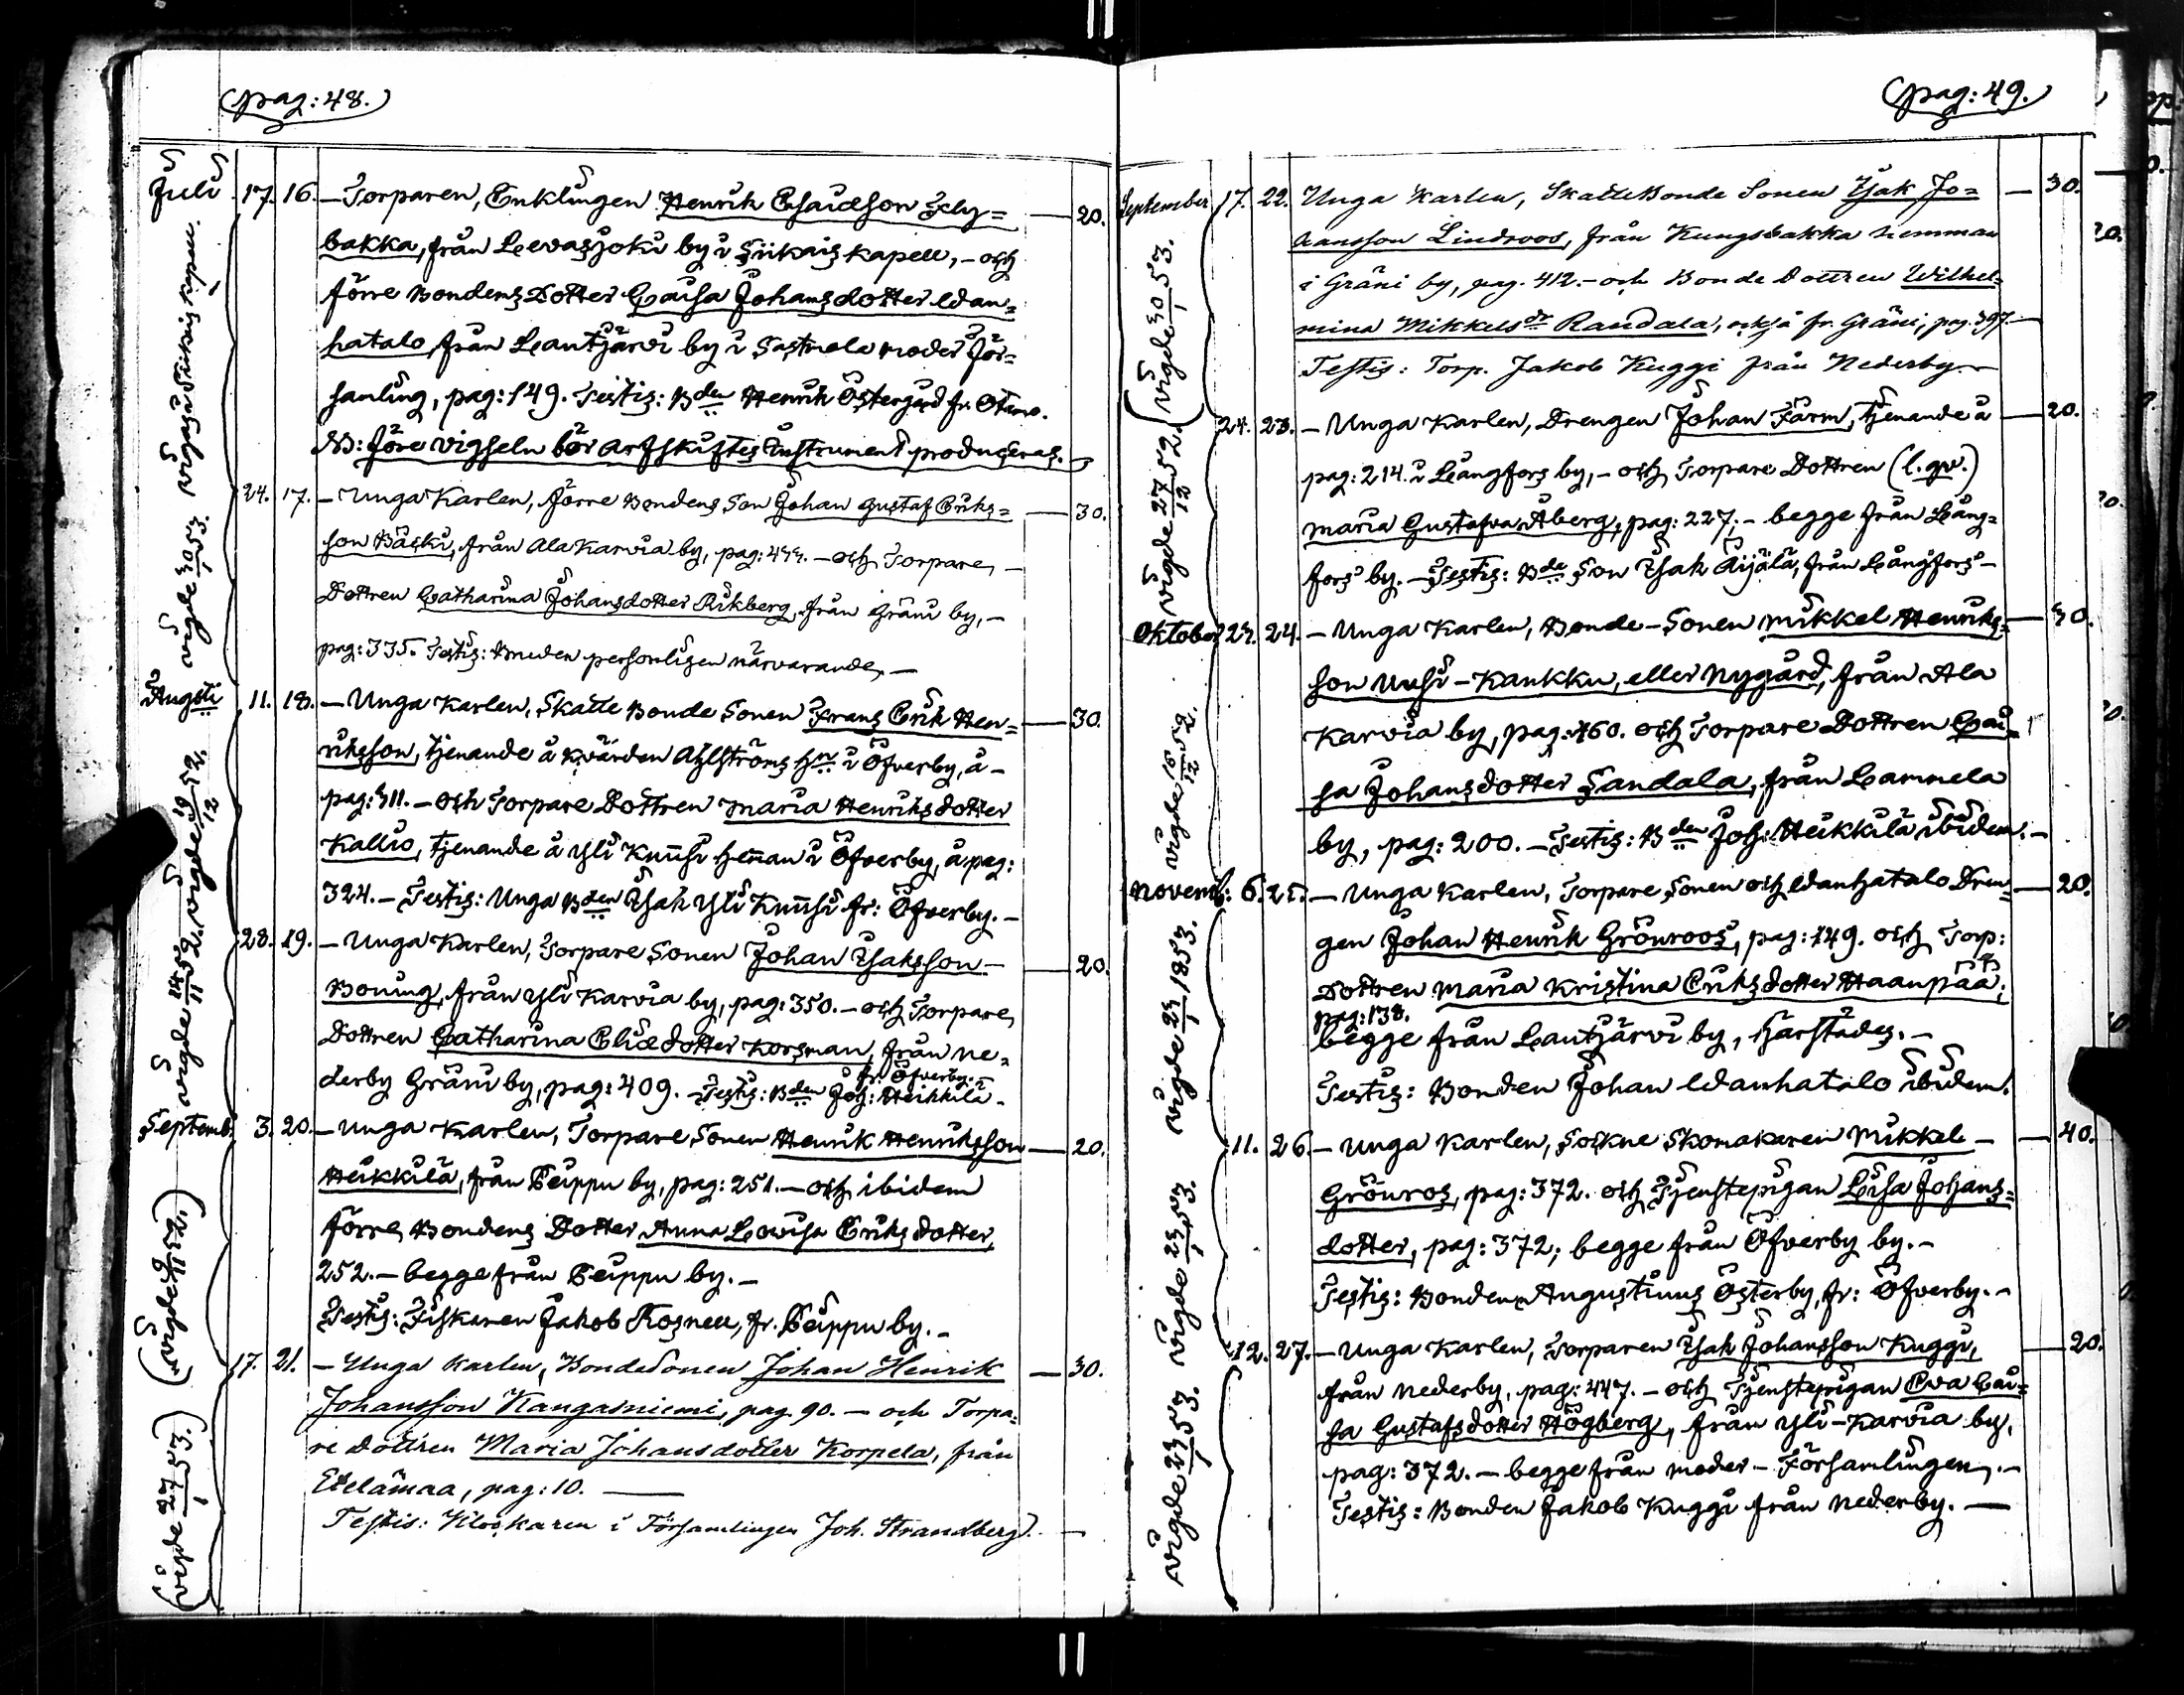 (pag: 48.)
Juli 17. 16. – Torparen, Enklingen Henrik Esaiæson
bakka, från Leväsjoki by i Siikais kapell, – och
förre Bondens Dotter Caisa Johansdotter Wan=
hatalo, från Lautjärvi by i Sastmola moder för=
samling, pag: 149. Testis: Bden Henrik Östergård fr. Otamo.
NB: före vigseln bör arfskiftes Instrument produceras.
20.
24. 17. – Unga Karlen, förre Bondens Son Johan Gustaf Eriks= 30.
son Bäcki, från Ala Karvia by, – och Torpare
Dottren Catharina Johansdotter Rikberg, från Gräni by, –
pag: 335. Testis: personligen närvarande –
Augsti 11. 18. – Unga Karlen, Skatte Bonde Sonen Frans Erik Hen= 30.
riksson, tjenande å Ahlströms i Öfverby, å –
pag: 311. – och Torpare Dottren Maria Henriksdotter
Kallio, tjenande å Yli Knuusi Heman i Öfverby, å pag:
324. – Testis: Unga Bden Isak Yli Knuusi fr: Öfverby. –
28. 19. – Unga Karlen, Torpare Sonen Johan Isaksson – 20.
Boning, från Yli Karvia by, pag: 350. – och Torpare
Dottren Catharina Eliædotter Korsman, från Ne=
derby Gräni by, pag: 409. – Testis: Bden Joh: Heikkilä fr: Öfverby. –
Septemb. 3. 20. – Unga Karlen, Torpare Sonen Henrik Henriksson 20.
Heikkilä, från Peippu by, pag: 251. – och ibidem
förre Bondens Dotter Anna Lovisa Eriksdotter,
252. – begge från Peippu by. –
Testis: Fiskaren Jakob Rosnell, fr. Peippu by. –
17. 21. – Unga Karlen, BondeSonen Johan Henrik 30.
Johansson Kangasniemi, pag. 90. – och Torpa=
re dottren Maria Johansdotter Korpela, från
Etelämaa, pag: 10. –
Testis: Klockaren i Församlingen Joh. Strandberg. –
(pag: 49.)
September 17. 22. Unga Karlen, SkatteBonde Sonen Isak Jo= 30.
hansson Lindroos, från Kungsbakka hemman
i Gräni by, pag. 412. – och Bonde Dottren Wilhel=
mina Mikkelsdr Randala, också fr. Gräni, pag. 397. –
Testis: Torp. Jakob Kuggi från Nederby. –
24. 23. – Unga Karlen, Drengen Johan Farm, tjenande å 20.
pag: 214. i Långfors by, – och Torpare Dottren (l. qv.)
Maria Gustafva Åberg, pag: 227; – begge från Lång=
fors by. – Testis: Bde Son Isak Äijälä, från Långfors –
Oktober 24. – Unga Karlen, Bonde-Sonen Mikkel Henriks=
son Uusi-Kaukku, eller Nygård, från Ala
Karvia by, pag: 460. och Torpare Dottren Cai=
sa Johansdotter Sandala, från Lammela
by, pag: 200. – Testis: Bden Joh: Heikkilä ibidem. –
Novemb: 6. 25. – Unga Karlen, Torpare Sonen och Wanhatalo Dren= 20.
gen Johan Henrik Grönroos, pag: 149. och Torp:
Dottren Maria Kristina Eriksdotter Haanpää;
pag: 138.
begge från Lautjärvi by, härstädes. –
Testis: Bonden Johan Wanhatalo ibidem.
11. 26. – Unga Karlen, Sockne Skomakaren Mikkel – 40.
Grönros, pag: 372. och Tjenstepigan Lisa Johans=
dotter, pag: 372; begge från Öfverby by. –
Testis: Bonden Augustinus Österby, fr: Öfverby. –
12. 27. – Unga Karlen, Torparen Isak Johansson Kuggi, 20.
från Nederby, pag: 447. – och Tjenstepigan Eva Cai=
sa Gustafsdotter Högberg, från Yli-Karvia by,
pag: 372. – begge från moder-Församlingen. –
Testis: Bonden Jakob Kuggi från Nederby. –